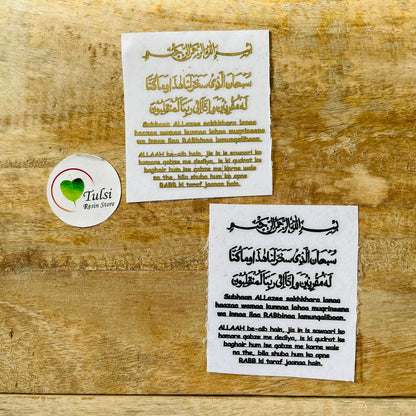 بسم الله الرحمن الرحيم
سبحان الذى سخر لنا هذا وما كنا
له مقرنين وانا الى ربنا لمنقلبون
Subhaan ALLazee sakhkhara lanaa
haazaa wamaa kunnaa lahoo muqrineena
wa innaa ilaa RABbinaa lamunqaliboon.
ALLAAH be-aib hain, jis in is sawaari ko
hamare qabze me dediya, is ki qudrat ke
baghair hum ise qabze me karne wale
na the, bila shuba hum ko apne
RABB ki taraf jaanaa hain.
Tulsi
Resin Store
بسم الله الرحمن الرحيم
سبحان الذى سخر لنا هذا وما كنا
له مقرنين وانا الى ربنا لمنقلبون
Subhaan ALLazee sakhkhara lanaa
haazaa wamaa kunnaa lahoo muqrineena
wa innaa ilaa RABbinaa lamunqaliboon.
ALLAAH be-aib hain, jis in is sawaari ko
hamare qabze me dediya, is ki qudrat ke
baghair hum ise qabze me karne wale
na the, bila shuba hum ko apne
RABB ki taraf jaanaa hain.